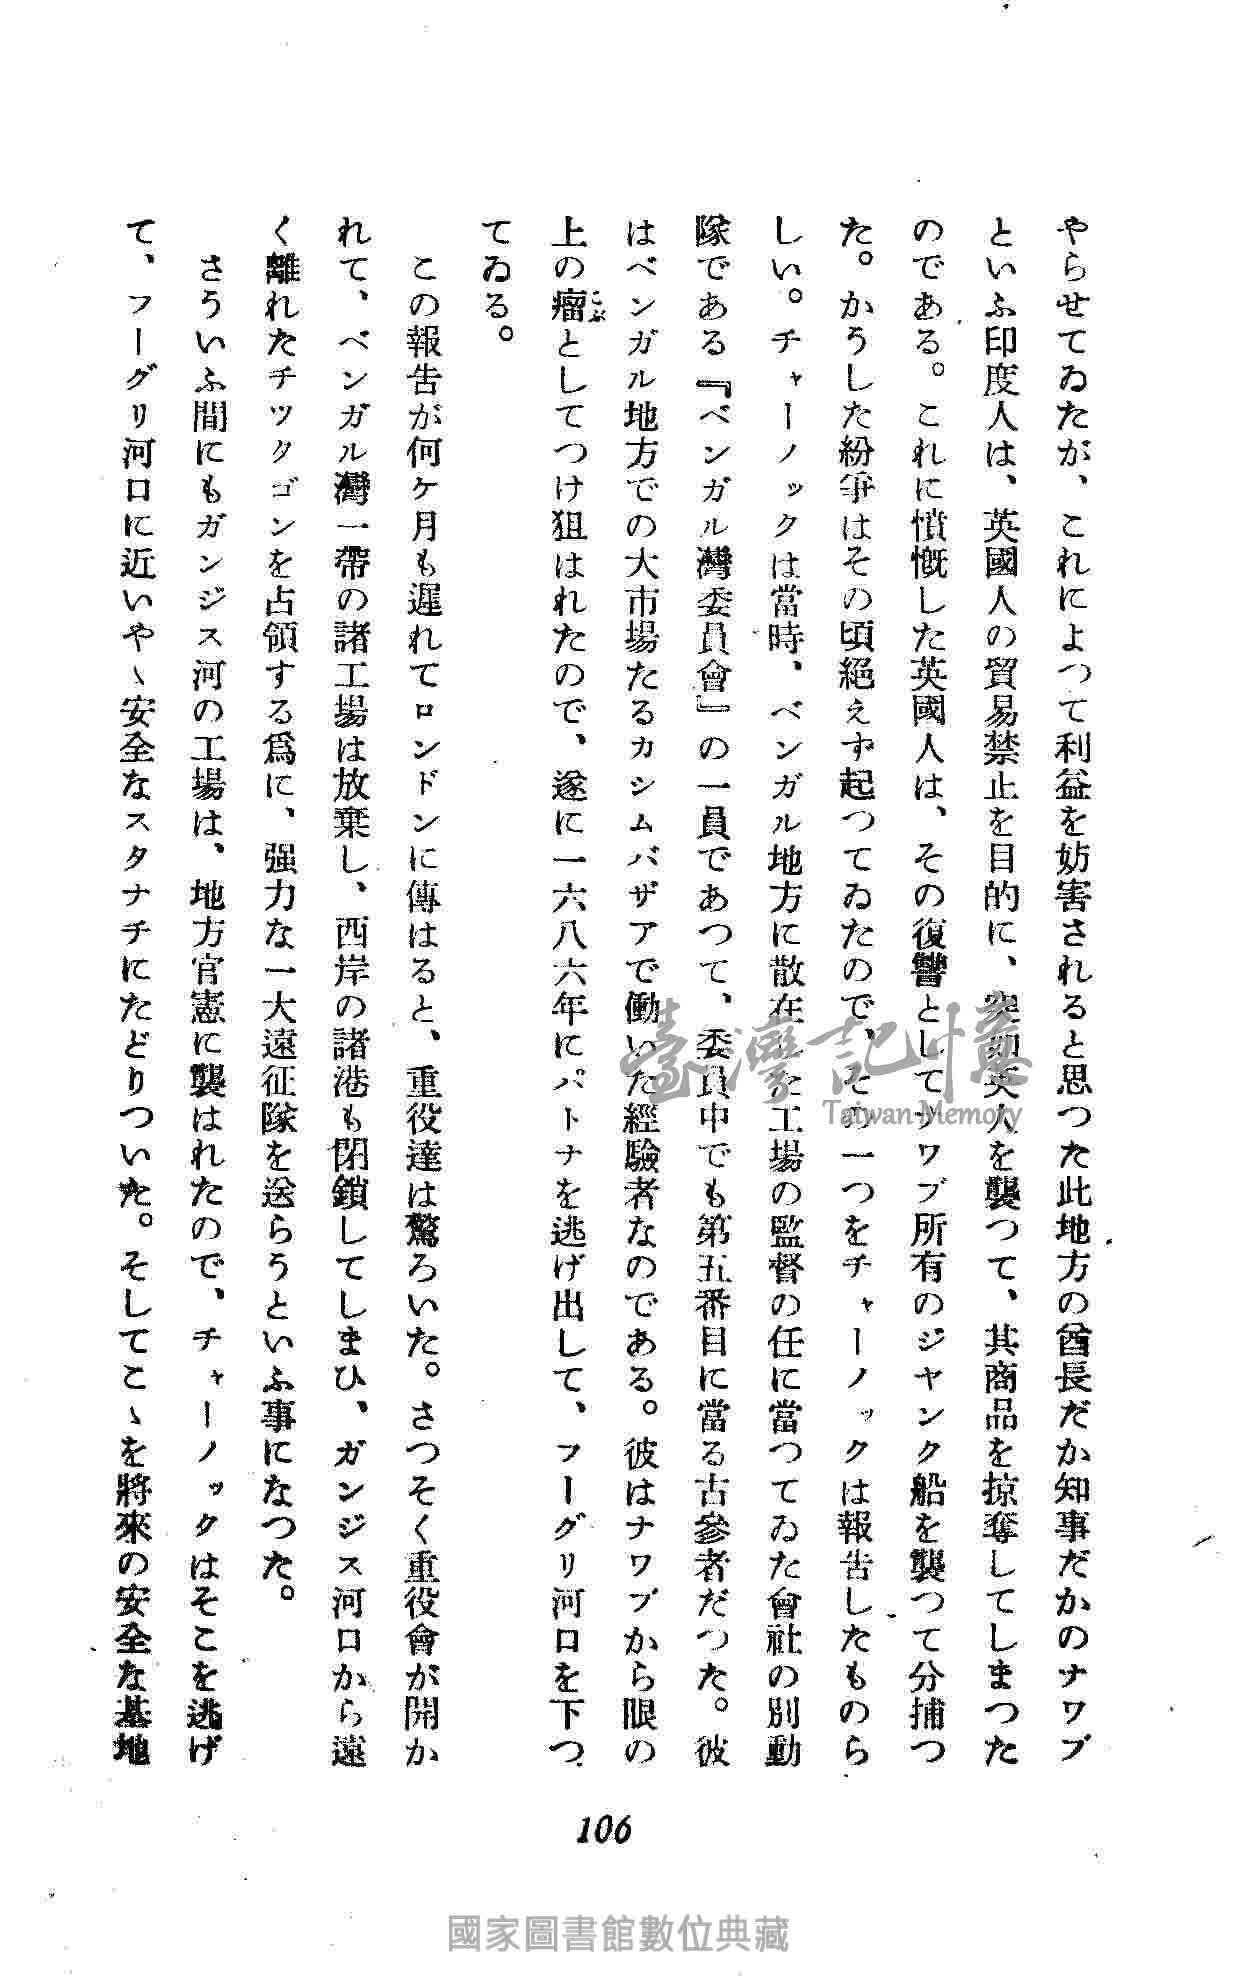 やらせてゐたが、これによつて利益を妨害されると思つた此地方の酋長だか知事だかのナワブ
といふ印度人は、英國人の貿易禁止を目的に、突如英人を襲つて、其商品を掠奪してしまつた
のである。これに憤慨した英國人は、その復讐としてナワブ所有のジヤンク船を襲つて分捕つ
た。かうした紛爭はその頃絕えず起つてゐたので、その一つをチャーノックは報吿したものら
しい。チャーノックは當時、ベンガル地方に散在した工場の監督の任に當つてゐた會社の別動
隊である『ベンガル灣委員會』の一員であつて、委員中でも第五番目に當る古參者だつた。彼
はベンガル地方での大市場たるカシムバザアで働いた經驗者なのである。彼はナワブから眼の
上の瘤としてつけ狙はれたので、遂に一六八六年にパトナを逃げ出して、フーグリ河口を下つ
こぶ
てゐる。
この報吿が何ケ月も遲れてロンドンに傳はると、重役達は驚ろいた。さつそく重役會が開か
れて、ベンガル灣一帶の諸工場は放棄し、西岸の諸港も閉鎖してしまひ、ガンジス河口から遠
く離れたチツクゴンを占領する爲に、强力な一大遠征隊を送らうといふ事になつた。
さういふ間にもガンジス河の工場は、地方官憲に襲はれたので、チャーノックはそこを逃げ
て、フーグリ河口に近いやゝ安全なスタナチにたどりついた。そしてこゝを將來の安全な基地
106
臺灣記憶
Taiwan Memory
國家圖書館數位典藏